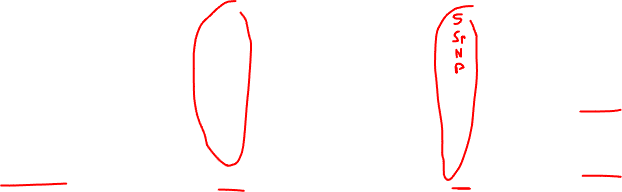 S
Sp
N
P